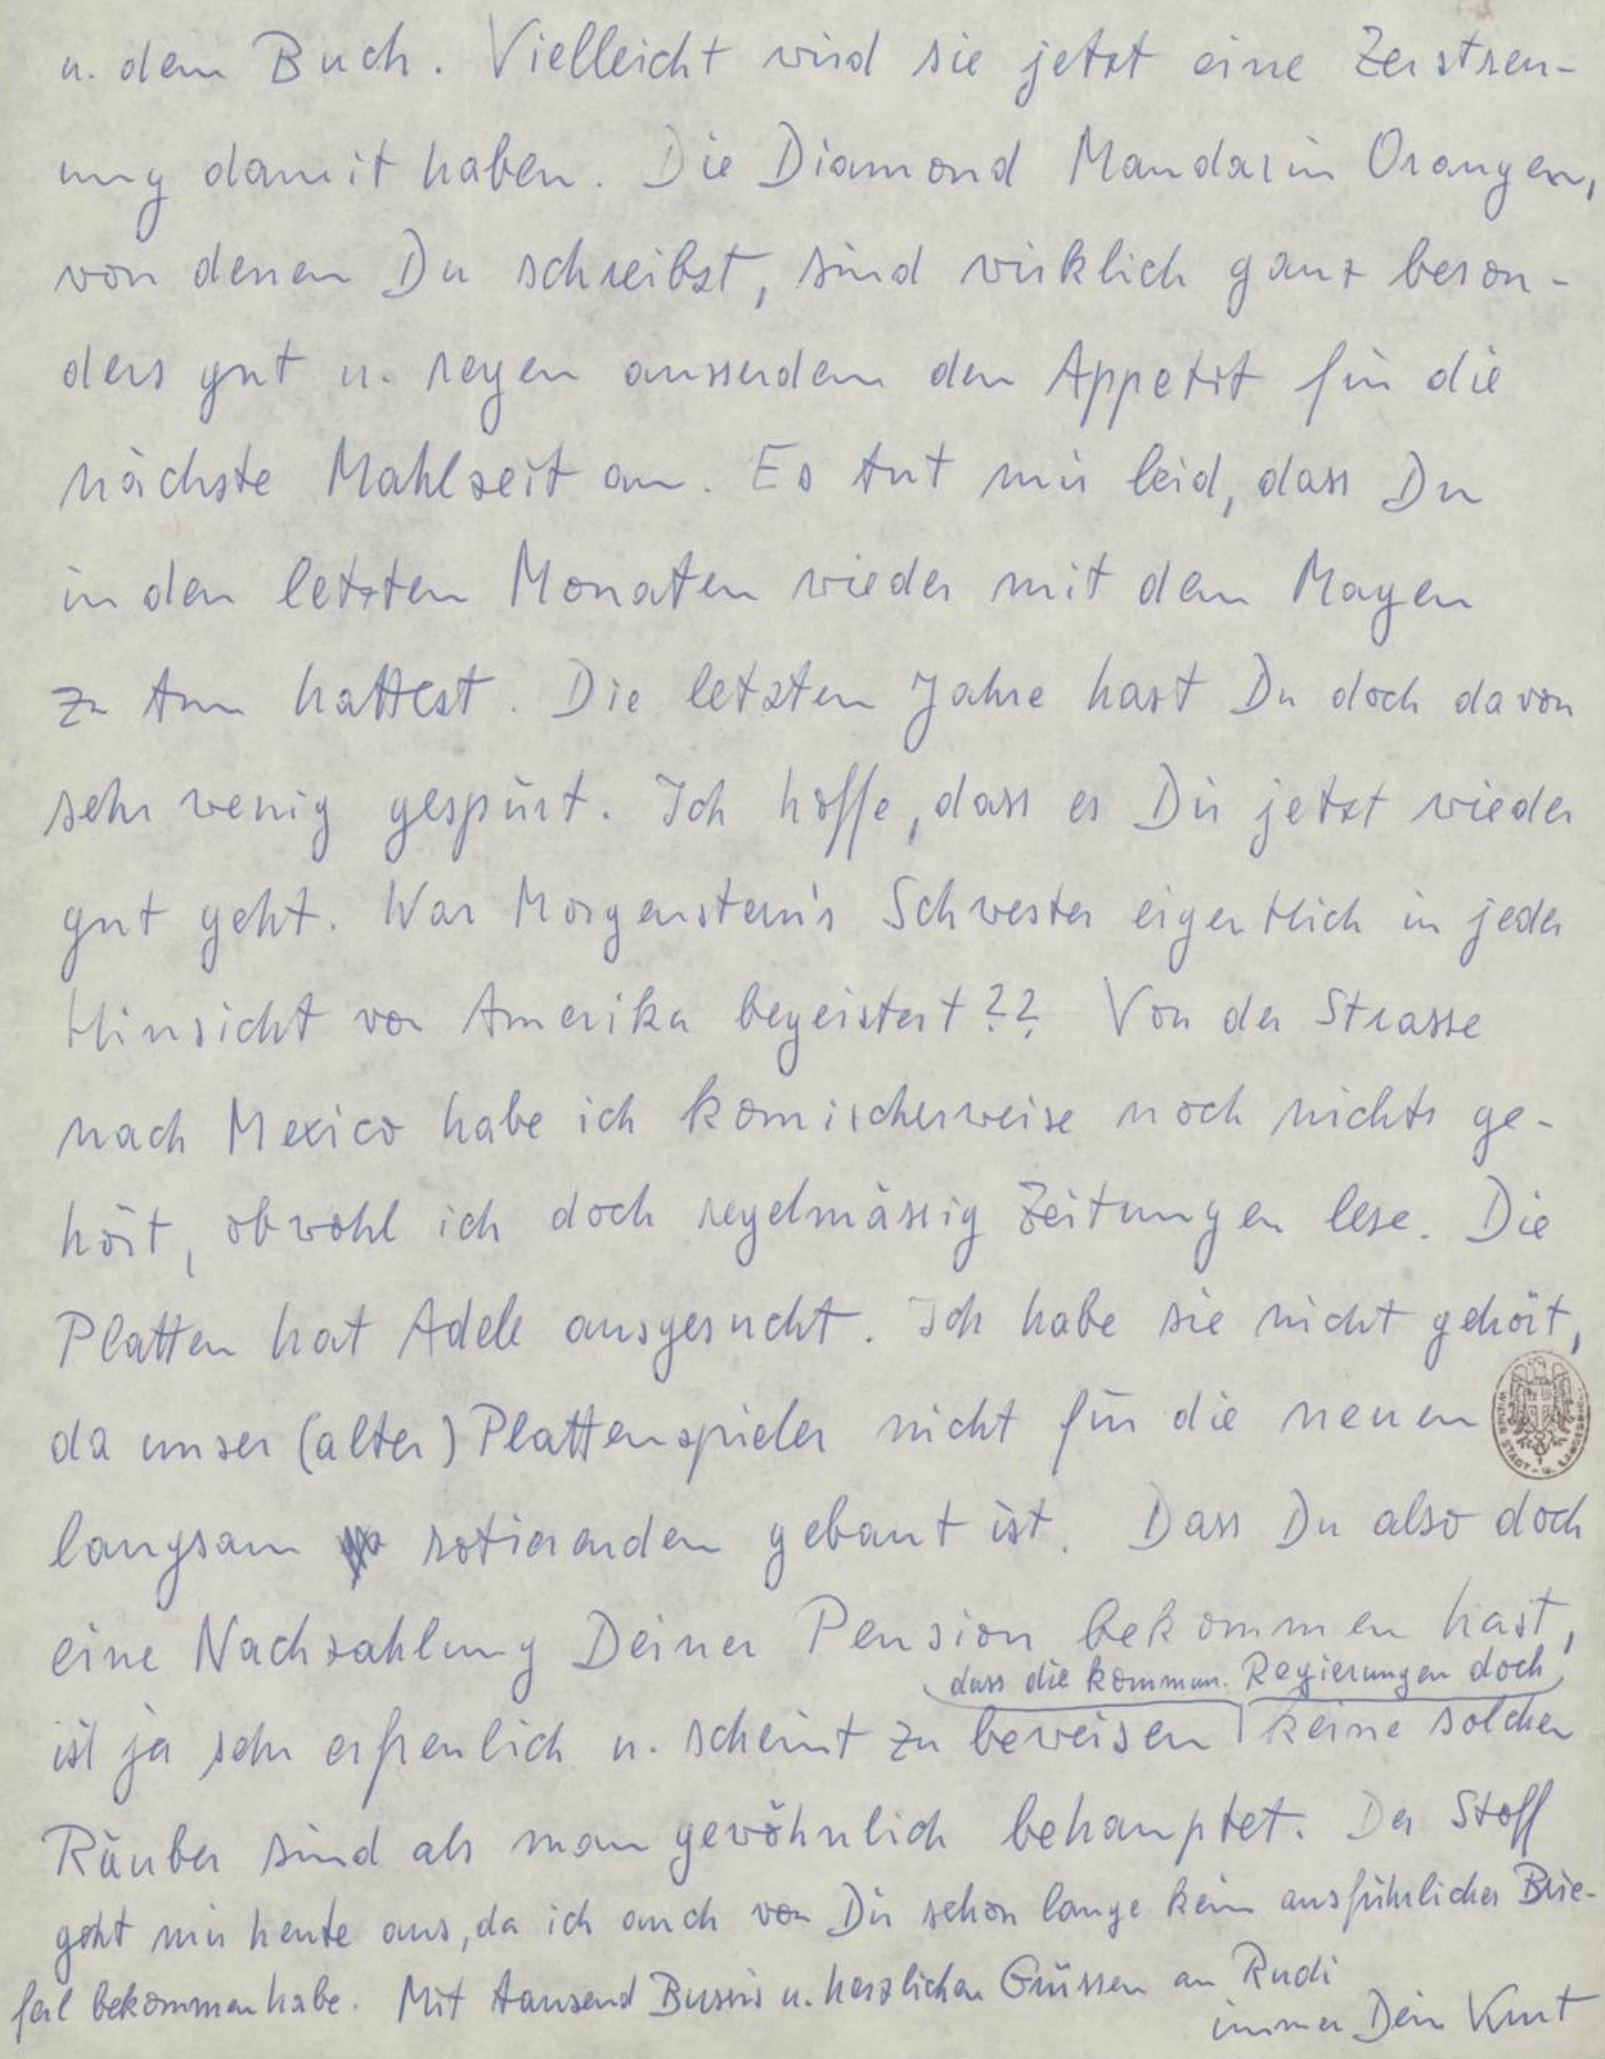 u. dem Buch. Vielleicht wird sie jetzt eine Zerstreu-
ung damit haben. Die Diamond Mandarin Orangen,
von denen Du schreibst, sind wirklich ganz beson-
ders gut u. regen ausserdem den Appetit für die
nächste Mahlzeit an. Es tut mir leid, dass Du
in den letzten Monaten wieder mit dem Magen
zu tun hattest. Die letzten Jahre hast Du doch davon
sehr wenig gespürt. Ich hoffe, dass es Dir jetzt wieder
gut geht. War Morgenstern's Schwester eigentlich in jeder
Hinsicht von Amerika begeistert?? Von der Strasse
nach Mexico habe ich komischerweise noch nichts ge-
hört, obwohl ich doch regelmässig Zeitungen lese. Die
Platten hat Adele ausgesucht. Ich habe sie nicht gehört,
da unser (alter) Plattenspieler nicht für die neuen
langsam rotierenden gebaut ist. Dass Du also doch
eine Nachzahlung Deiner Pension bekommen hast,
dass die kommun. Regierungen doch
ist ja sehr erfreulich u. scheint zu beweisen keine solchen
Räuber sind als man gewöhnlich behauptet. Der Stoff
geht mir heute aus, da ich auch von Dir schon lange kein ausführliches Brie-
ferl bekommen habe. Mit tausend Bussis u. herzlichen Grüssen an Rudi
immer Dein Kurt
WIENER STADT- U. LANDESBIBL.